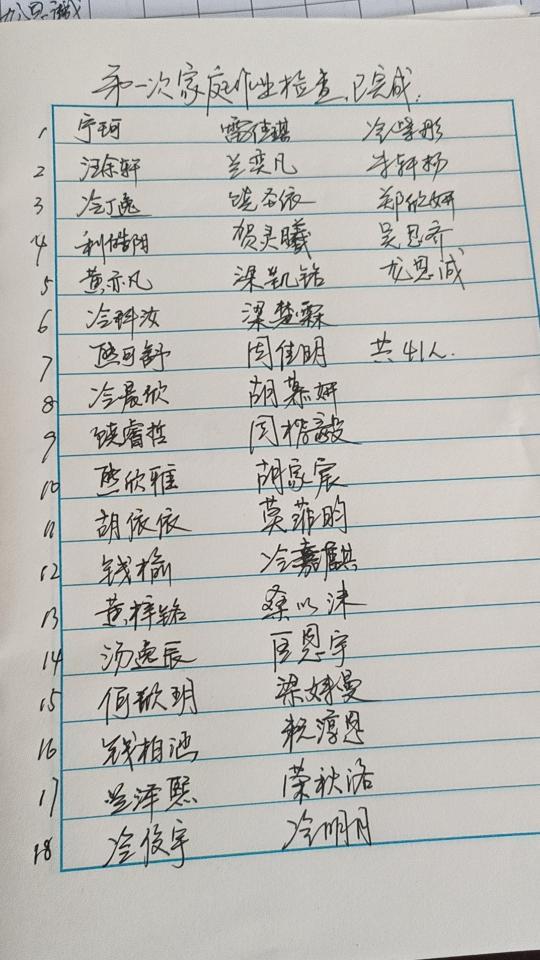 龙恩诚
第一次家庭作业检查,已完成:
1 宁珂 雷佳琪 冷肇彤
2 汪徐轩 兰奕凡 李轩杨
3 冷丁逸 饶圣依 郑欣妍
4 利皓阳 贺灵曦 吴思齐
5 黄亦凡 梁凯铭 龙恩诚
6 冷科汝 梁楚霖
7 熊可舒 周佳明 共41人.
8 冷晨欣 胡慕妍
9 饶睿哲 周楷毅
10 熊欣雅 胡家宸
11 胡依依 莫菲昀
12 钱榆 冷嘉麒
13 黄梓铭 桑以沫
14 汤逸辰 匡恩宇
15 何歆玥 梁婧曼
16 钱柏涵 祝淳恩
17 兰泽熙 荣秋洛
18 冷俊宇 冷明月